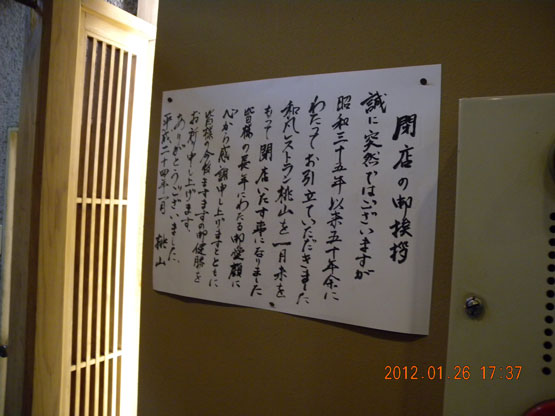 閉店の御挨拶
誠に突然ではございますが
昭和三十五年以来五十年余に
わたってお引立ていただきました
和風レストラン桃山を一月末を
もって閉店いたす事になりました
皆様の長年にわたる御愛顧に
心から感謝申し上げますとともに
皆様の今后ますますの御健勝を
お祈り申し上げます。
ありがとうございました。
平成二十四年一月 桃山
2012.01.26 17:37